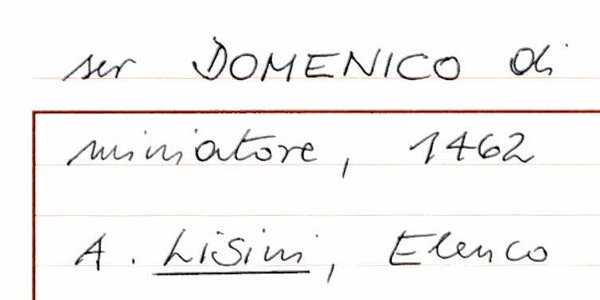 ser DOMENICO di
miniatore, 1462
A. Lisini, Elenco